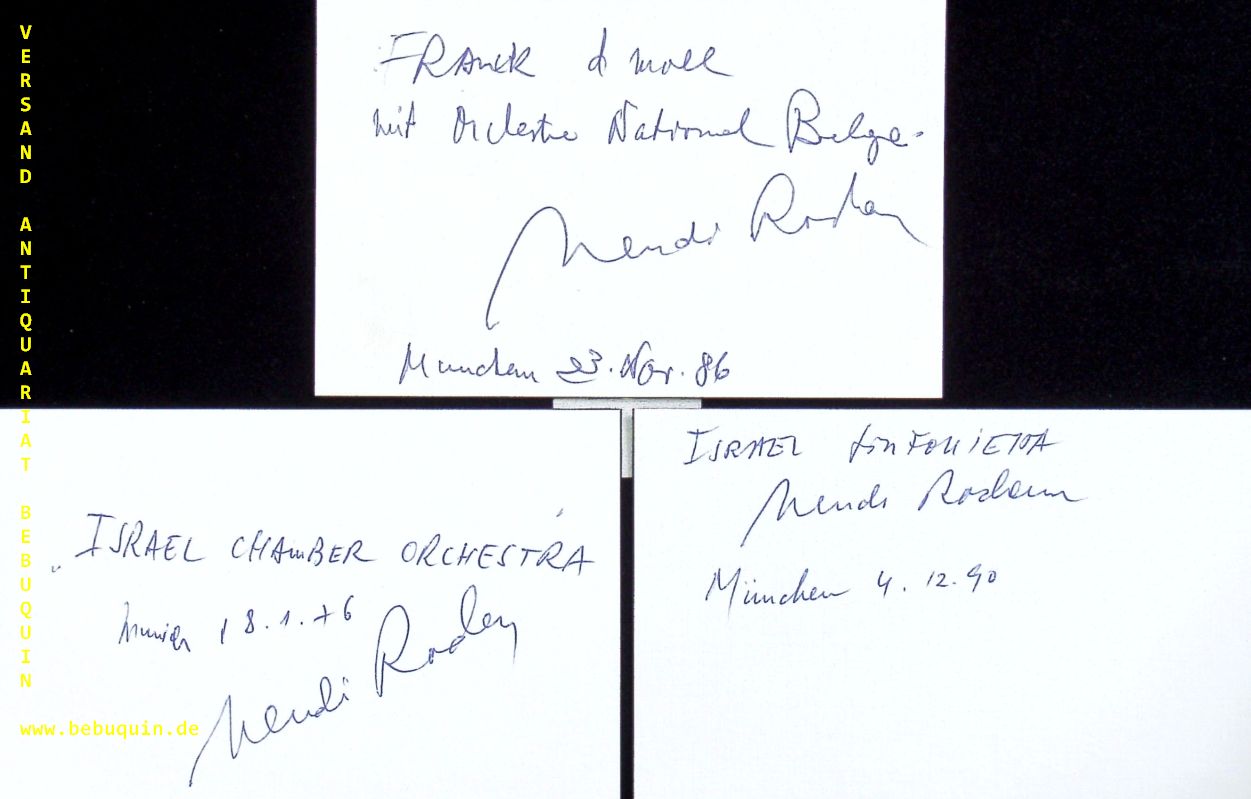 FRANCK d moll
mit Orchestre National Belge.
Mendi Rodan
München 23. Nov. 86
ISRAEL SINFONIETTA
Mendi Rodan
München 4. 12. 90
"ISRAEL CHAMBER ORCHESTRA"
Munich 18. 1. 76
Mendi Rodan
VERSAND ANTIQUARIAT BEBUQUIN
www.bebuquin.de